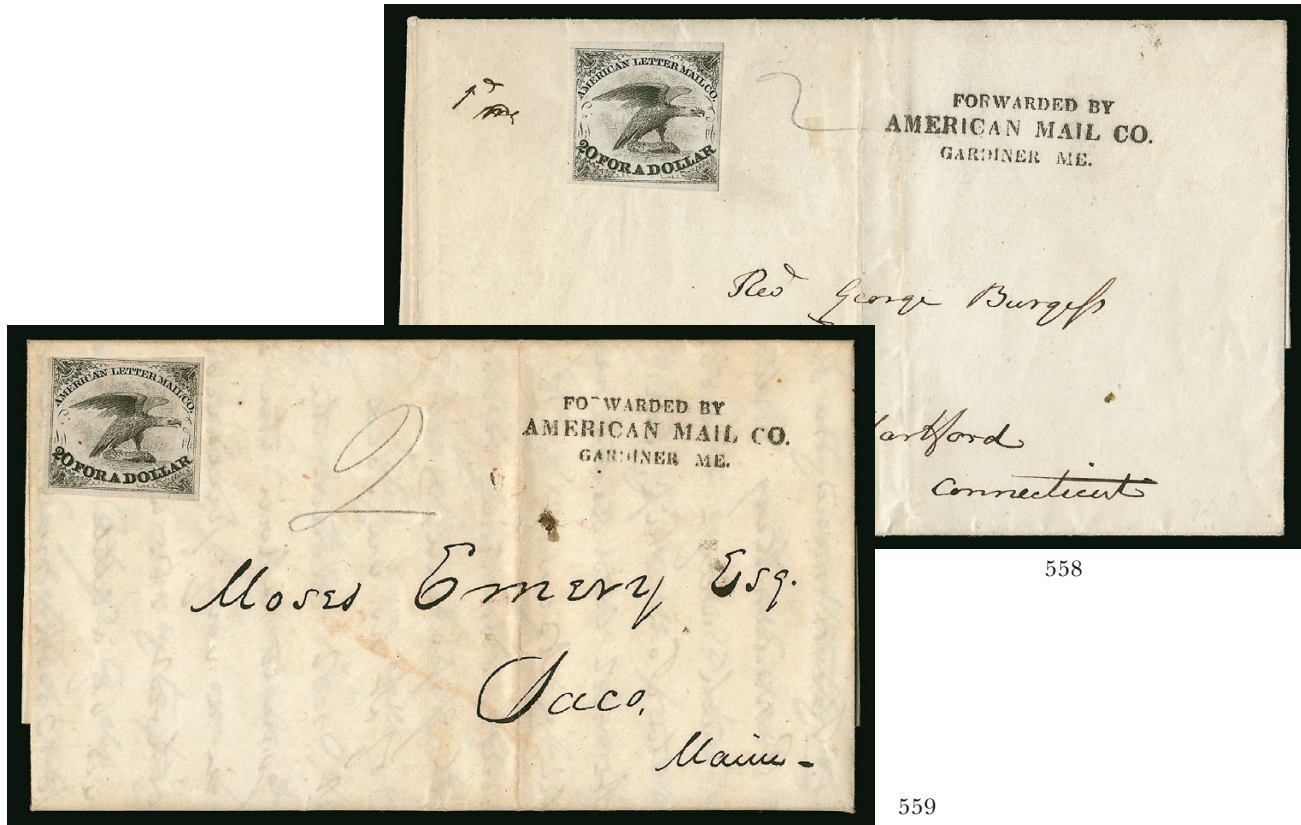 AMERICAN LETTER MAIL CO.
20 FOR A DOLLAR
FORWARDED BY
AMERICAN MAIL CO.
GARDINER ME.
Revd George Burgess
Hartford
Connecticut
558
AMERICAN LETTER MAIL CO.
20 FOR A DOLLAR
2
FORWARDED BY
AMERICAN MAIL CO.
GARDINER ME.
Moses Emery Esq.
Saco,
Maine -
559